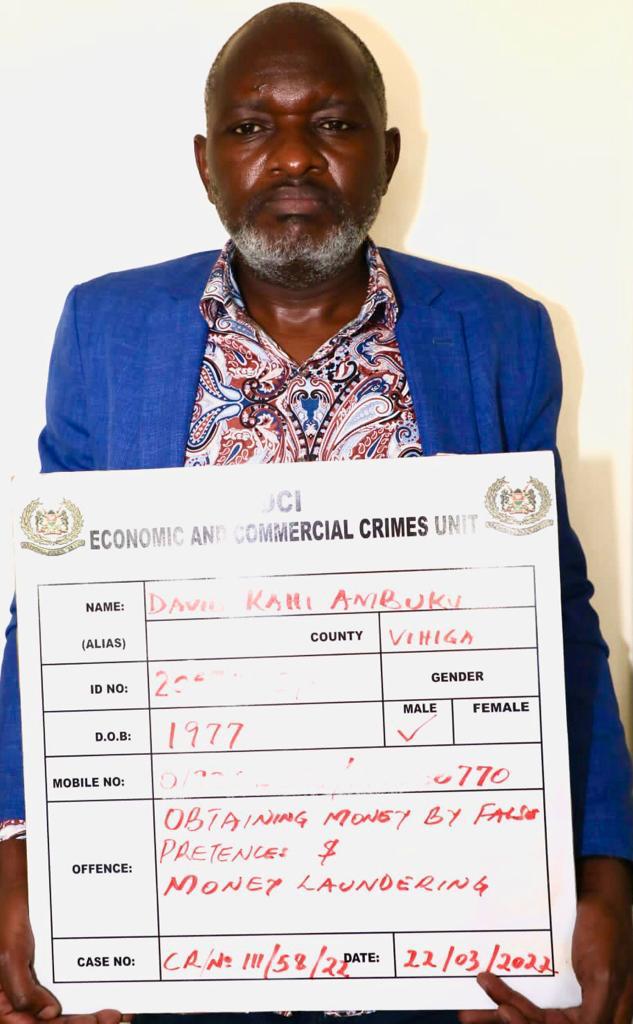 DCI
ECONOMIC AND COMMERCIAL CRIMES UNIT
NAME: DAVID KAHI AMBUKU
(ALIAS) COUNTY VIHIGA
ID NO: GENDER
D.O.B: 1977 MALE ✓ FEMALE
MOBILE NO:
OFFENCE: OBTAINING MONEY BY FALSE
PRETENCES &
MONEY LAUNDERING
CASE NO: CR/No 111/58/22 DATE: 22/03/2022